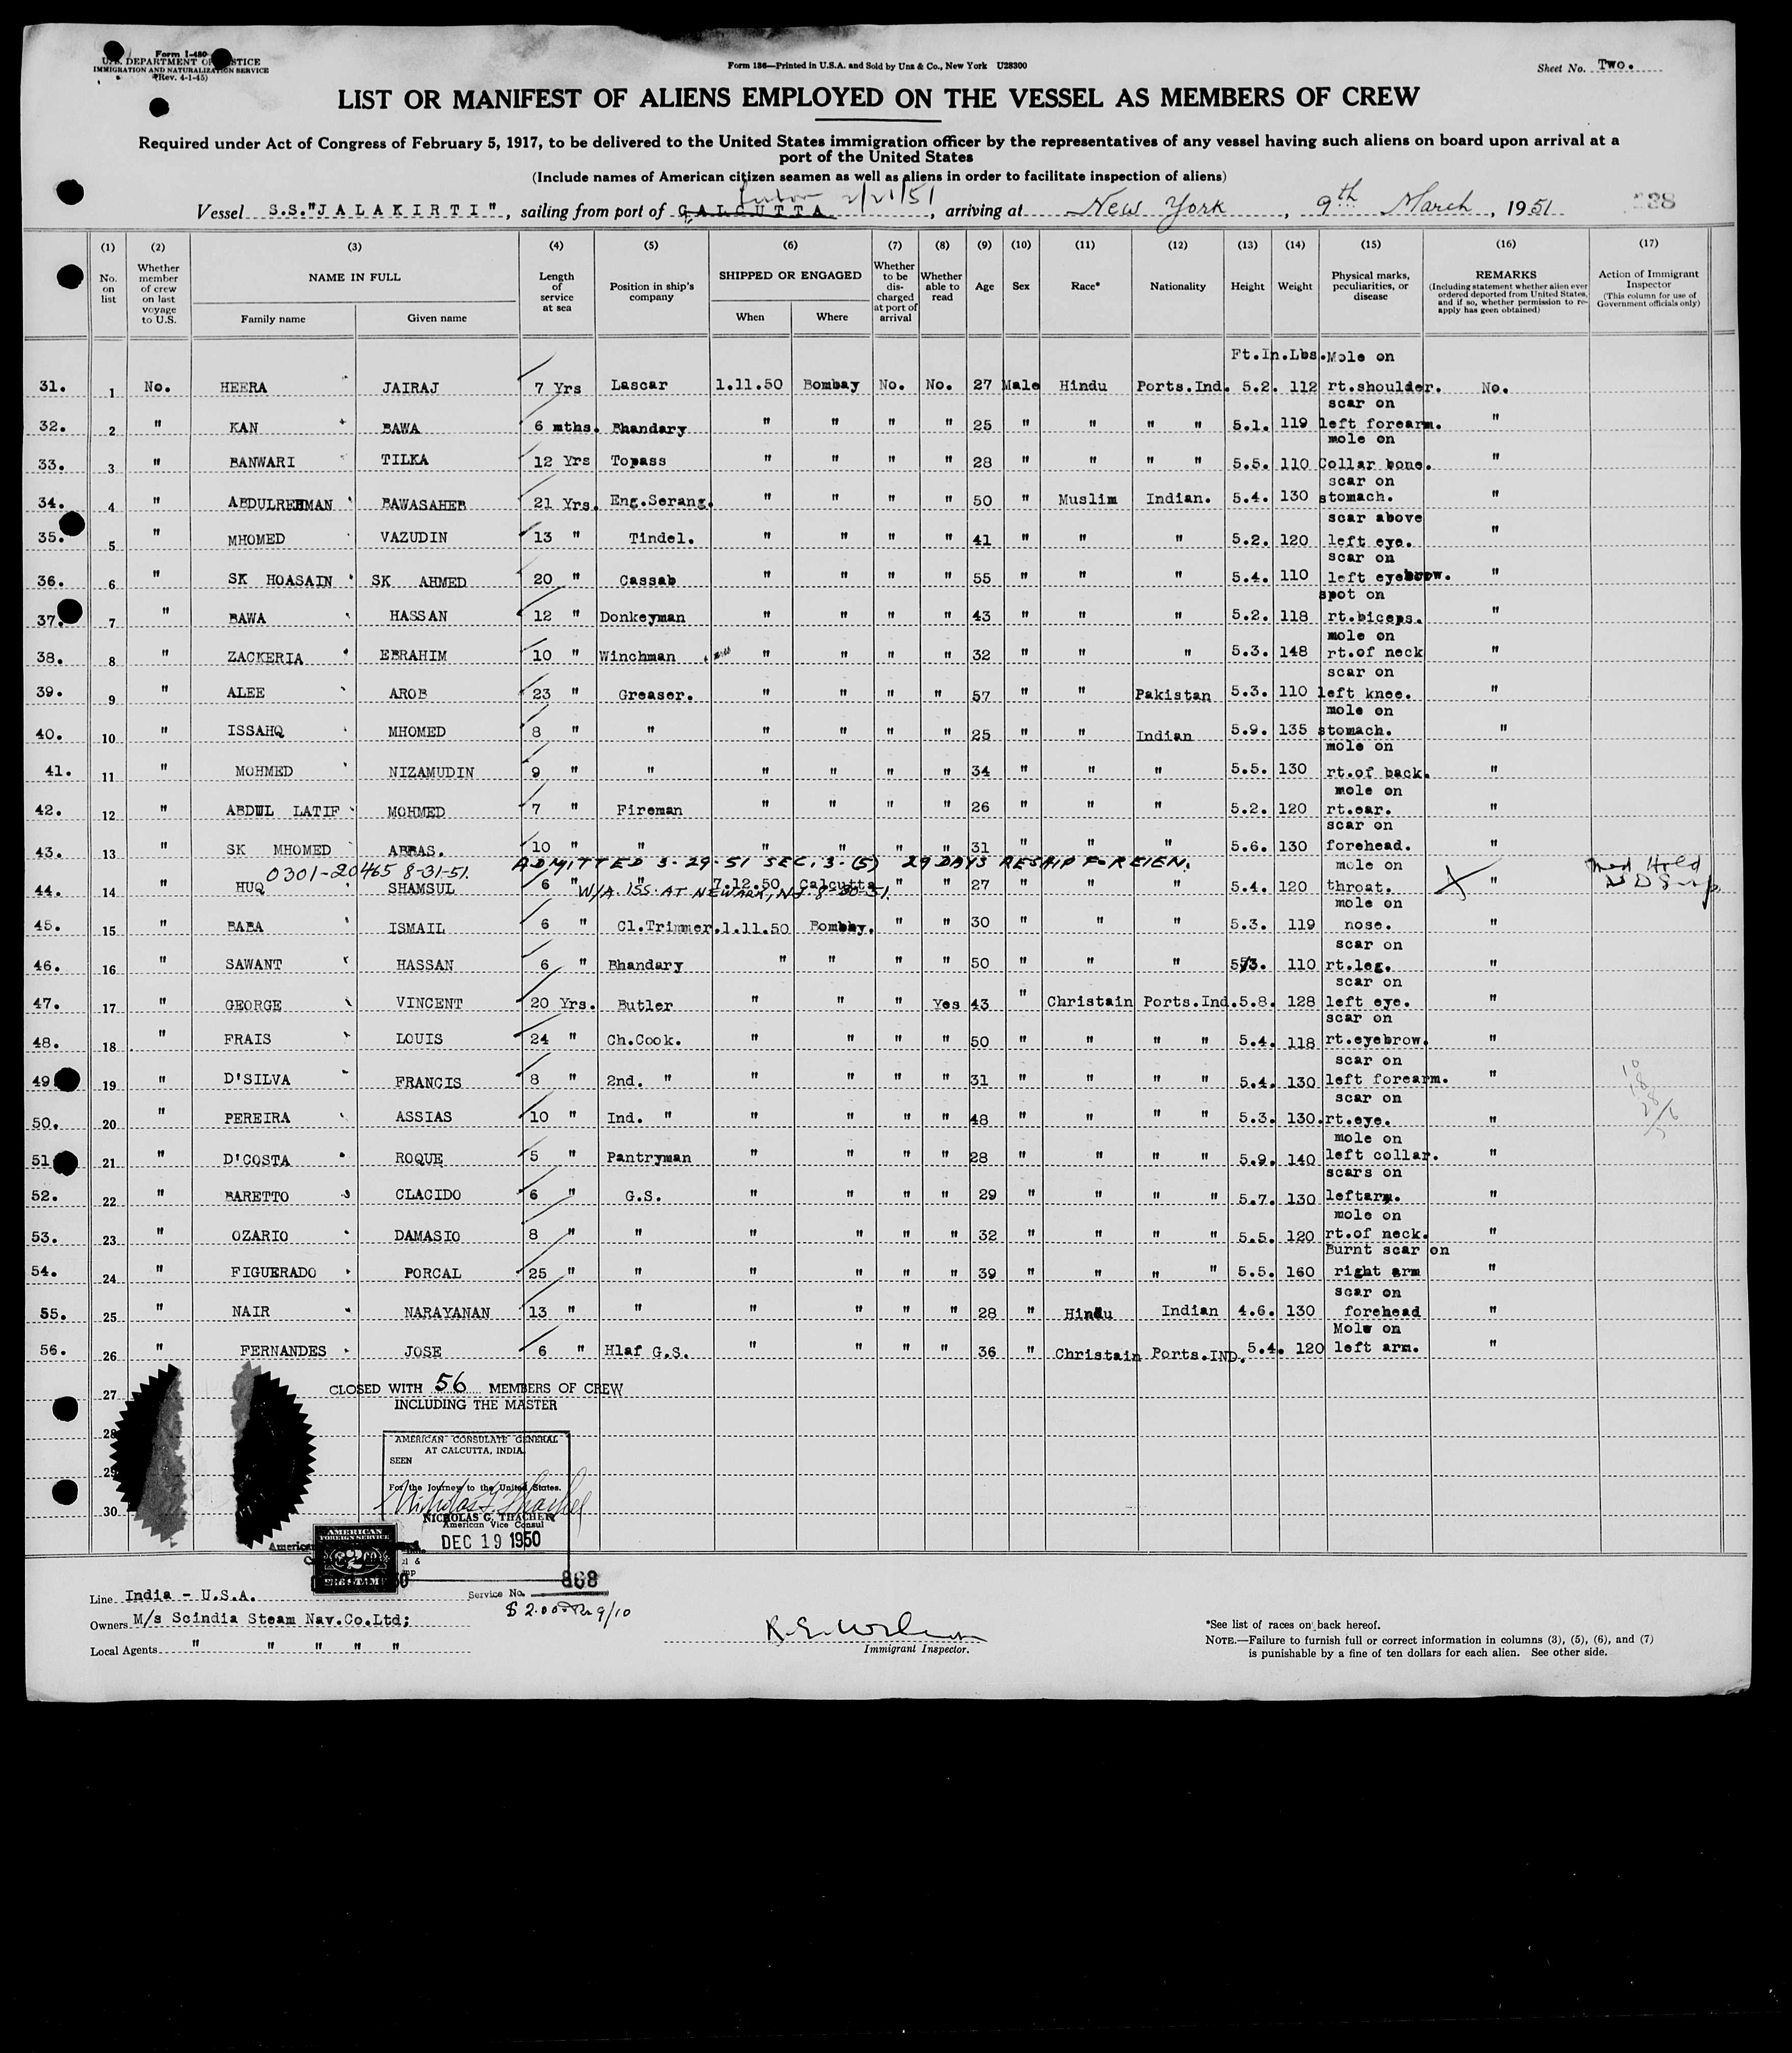 Form I-480
U.S. DEPARTMENT OF JUSTICE
IMMIGRATION AND NATURALIZATION SERVICE
(Rev. 4-1-45)
Form 136—Printed in U.S.A. and Sold by Unz & Co., New York U28300
Sheet No. Two.
LIST OR MANIFEST OF ALIENS EMPLOYED ON THE VESSEL AS MEMBERS OF CREW
Required under Act of Congress of February 5, 1917, to be delivered to the United States immigration officer by the representatives of any vessel having such aliens on board upon arrival at a
port of the United States
(Include names of American citizen seamen as well as aliens in order to facilitate inspection of aliens)
2/21/51
Vessel S.S."JALAKIRTI", sailing from port of CALCUTTA, arriving at New York, 9th March, 1951
(1) No. on list (2) Whether member of crew on last voyage to U.S. (3) NAME IN FULL Family name Given name (4) Length of service at sea (5) Position in ship's company (6) SHIPPED OR ENGAGED When Where (7) Whether to be discharged at port of arrival (8) Whether able to read (9) Age (10) Sex (11) Race* (12) Nationality (13) Height (14) Weight (15) Physical marks, peculiarities, or disease (16) REMARKS (Including statement whether alien ever ordered deported from United States, and if so, whether permission to re-apply has geen obtained) (17) Action of Immigrant Inspector (This column for use of Government officials only)
Ft.In.Lbs.
31. 1 No. HEERA JAIRAJ 7 Yrs Lascar 1.11.50 Bombay No. No. 27 Male Hindu Ports.Ind. 5.2. 112 Mole on rt.shoulder. No.
32. 2 " KAN BAWA 6 mths. Bhandary " " " " 25 " " " " 5.1. 119 scar on left forearm. "
33. 3 " BANWARI TILKA 12 Yrs Topass " " " " 28 " " " " 5.5. 110 mole on Collar bone. "
34. 4 " ABDULREHMAN BAWASAHEB 21 Yrs. Eng.Serang. " " " " 50 " Muslim Indian. 5.4. 130 scar on stomach. "
35. 5 " MHOMED VAZUDIN 13 " Tindel. " " " " 41 " " " 5.2. 120 scar above left eye. "
36. 6 " SK HOASAIN SK AHMED 20 " Cassab " " " " 55 " " " 5.4. 110 scar on left eyebrow. "
37. 7 " BAWA HASSAN 12 " Donkeyman " " " " 43 " " " 5.2. 118 spot on rt.biceps. "
38. 8 " ZACKERIA EBRAHIM 10 " Winchman " " " " 32 " " " 5.3. 148 mole on rt.of neck "
39. 9 " ALEE AROB 23 " Greaser. " " " " 57 " " Pakistan 5.3. 110 scar on left knee. "
40. 10 " ISSAHQ MHOMED 8 " " " " " " 25 " " Indian 5.9. 135 mole on stomach. "
41. 11 " MOHMED NIZAMUDIN 9 " " " " " " 34 " " " 5.5. 130 mole on rt.of back. "
42. 12 " ABDUL LATIF MOHMED 7 " Fireman " " " " 26 " " " 5.2. 120 mole on rt.ear. "
43. 13 " SK MHOMED ABBAS. 10 " " " " " " 31 " " " 5.6. 130 scar on forehead. "
0301-20465 8-31-51. ADMITTED 3-29-51 SEC. 3-(5) 29 DAYS RESHIP FOREIGN.
44. 14 " HUQ SHAMSUL 6 " " 7.12.50 Calcutta " " 27 " " " 5.4. 120 mole on throat. " Med Hold
W/A 155 AT NEWARK, NJ 8-30-51.
45. 15 " BABA ISMAIL 6 " Cl.Trimmer. 1.11.50 Bombay. " " 30 " " " 5.3. 119 mole on nose. "
46. 16 " SAWANT HASSAN 6 " Bhandary " " " " 50 " " " 5/3. 110 scar on rt.leg. "
47. 17 " GEORGE VINCENT 20 Yrs. Butler " " " Yes 43 " Christain Ports.Ind. 5.8. 128 scar on left eye. "
48. 18 " FRAIS LOUIS 24 " Ch.Cook. " " " " 50 " " " " 5.4. 118 scar on rt.eyebrow. "
49 19 " D'SILVA FRANCIS 8 " 2nd. " " " " " 31 " " " " 5.4. 130 scar on left forearm. "
50. 20 " PEREIRA ASSIAS 10 " Ind. " " " " " 48 " " " " 5.3. 130. scar on rt.eye. "
51 21 " D'COSTA ROQUE 5 " Pantryman " " " " 28 " " " " 5.9. 140 mole on left collar. "
52. 22 " BARETTO CLACIDO 6 " G.S. " " " " 29 " " " " 5.7. 130 scars on leftarm. "
53. 23 " OZARIO DAMASIO 8 " " " " " " 32 " " " " 5.5. 120 mole on rt.of neck. "
54. 24 " FIGUERADO PORCAL 25 " " " " " " 39 " " " " 5.5. 160 Burnt scar on right arm "
55. 25 " NAIR NARAYANAN 13 " " " " " " 28 " Hindu Indian 4.6. 130 scar on forehead "
56. 26 " FERNANDES JOSE 6 " Hlaf G.S. " " " " 36 " Christain Ports.IND. 5.4. 120 Mole on left arm. "
27
CLOSED WITH 56 MEMBERS OF CREW
INCLUDING THE MASTER
28
29
30
AMERICAN CONSULATE GENERAL
AT CALCUTTA, INDIA
SEEN
For the Journey to the United States.
Nicholas G. Thacher
NICHOLAS G. THACHER
American Vice Consul
DEC 19 1950
AMERICAN
FOREIGN SERVICE
Line India - U.S.A.
Service No. 868
$ 2.00
Owners M/s Scindia Steam Nav.Co.Ltd;
Local Agents " " " " "
Immigrant Inspector.
*See list of races on back hereof.
NOTE.—Failure to furnish full or correct information in columns (3), (5), (6), and (7)
is punishable by a fine of ten dollars for each alien. See other side.